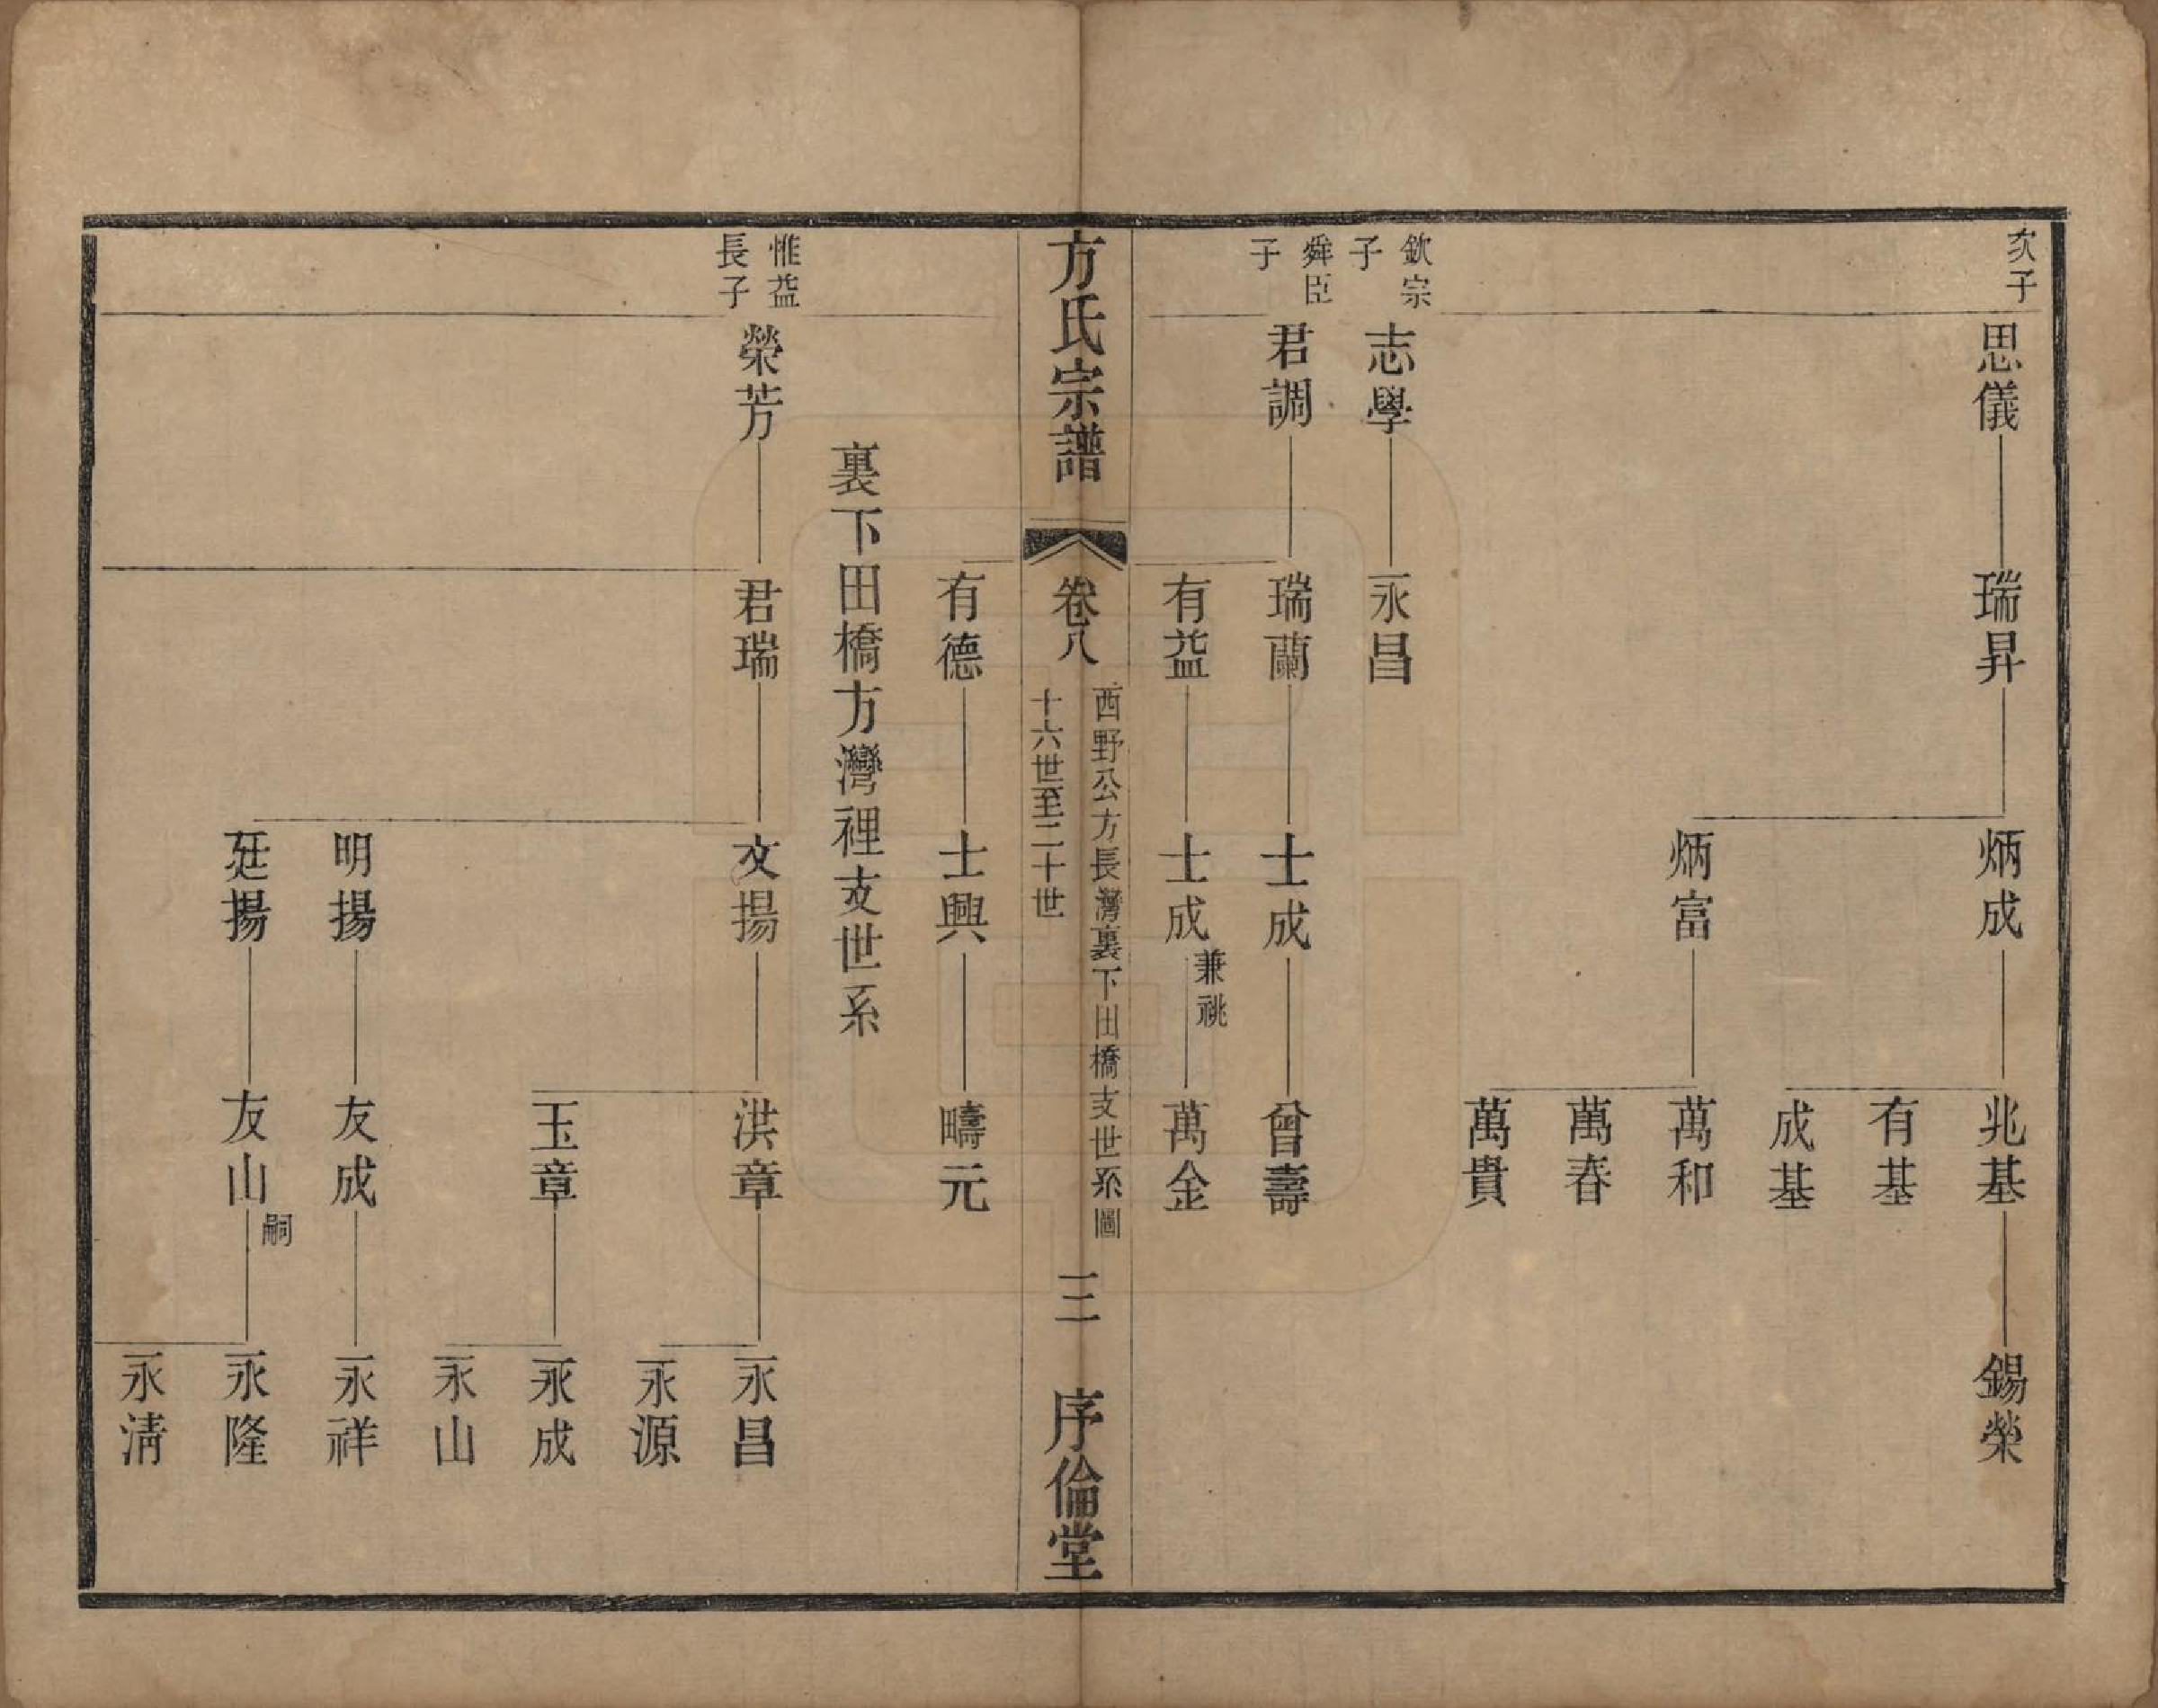 次子
思儀
瑞昇
炳成
兆基
錫榮
有基
成基
炳富
萬和
萬春
萬貴
欽宗
子
志學
永昌
舜臣
子
君調
瑞蘭
士成
曾壽
有益
士成
兼祧
萬金
方氏宗譜
卷八
西野公方長灣裏下田橋支世系圖
十六世至二十世
三
序倫堂
有德
士興
疇元
裏下田橋方灣裡支世系
惟益
長子
榮芳
君瑞
文揚
洪章
永昌
永源
玉章
永成
永山
明揚
友成
永祥
廷揚
友山
嗣
永隆
永清